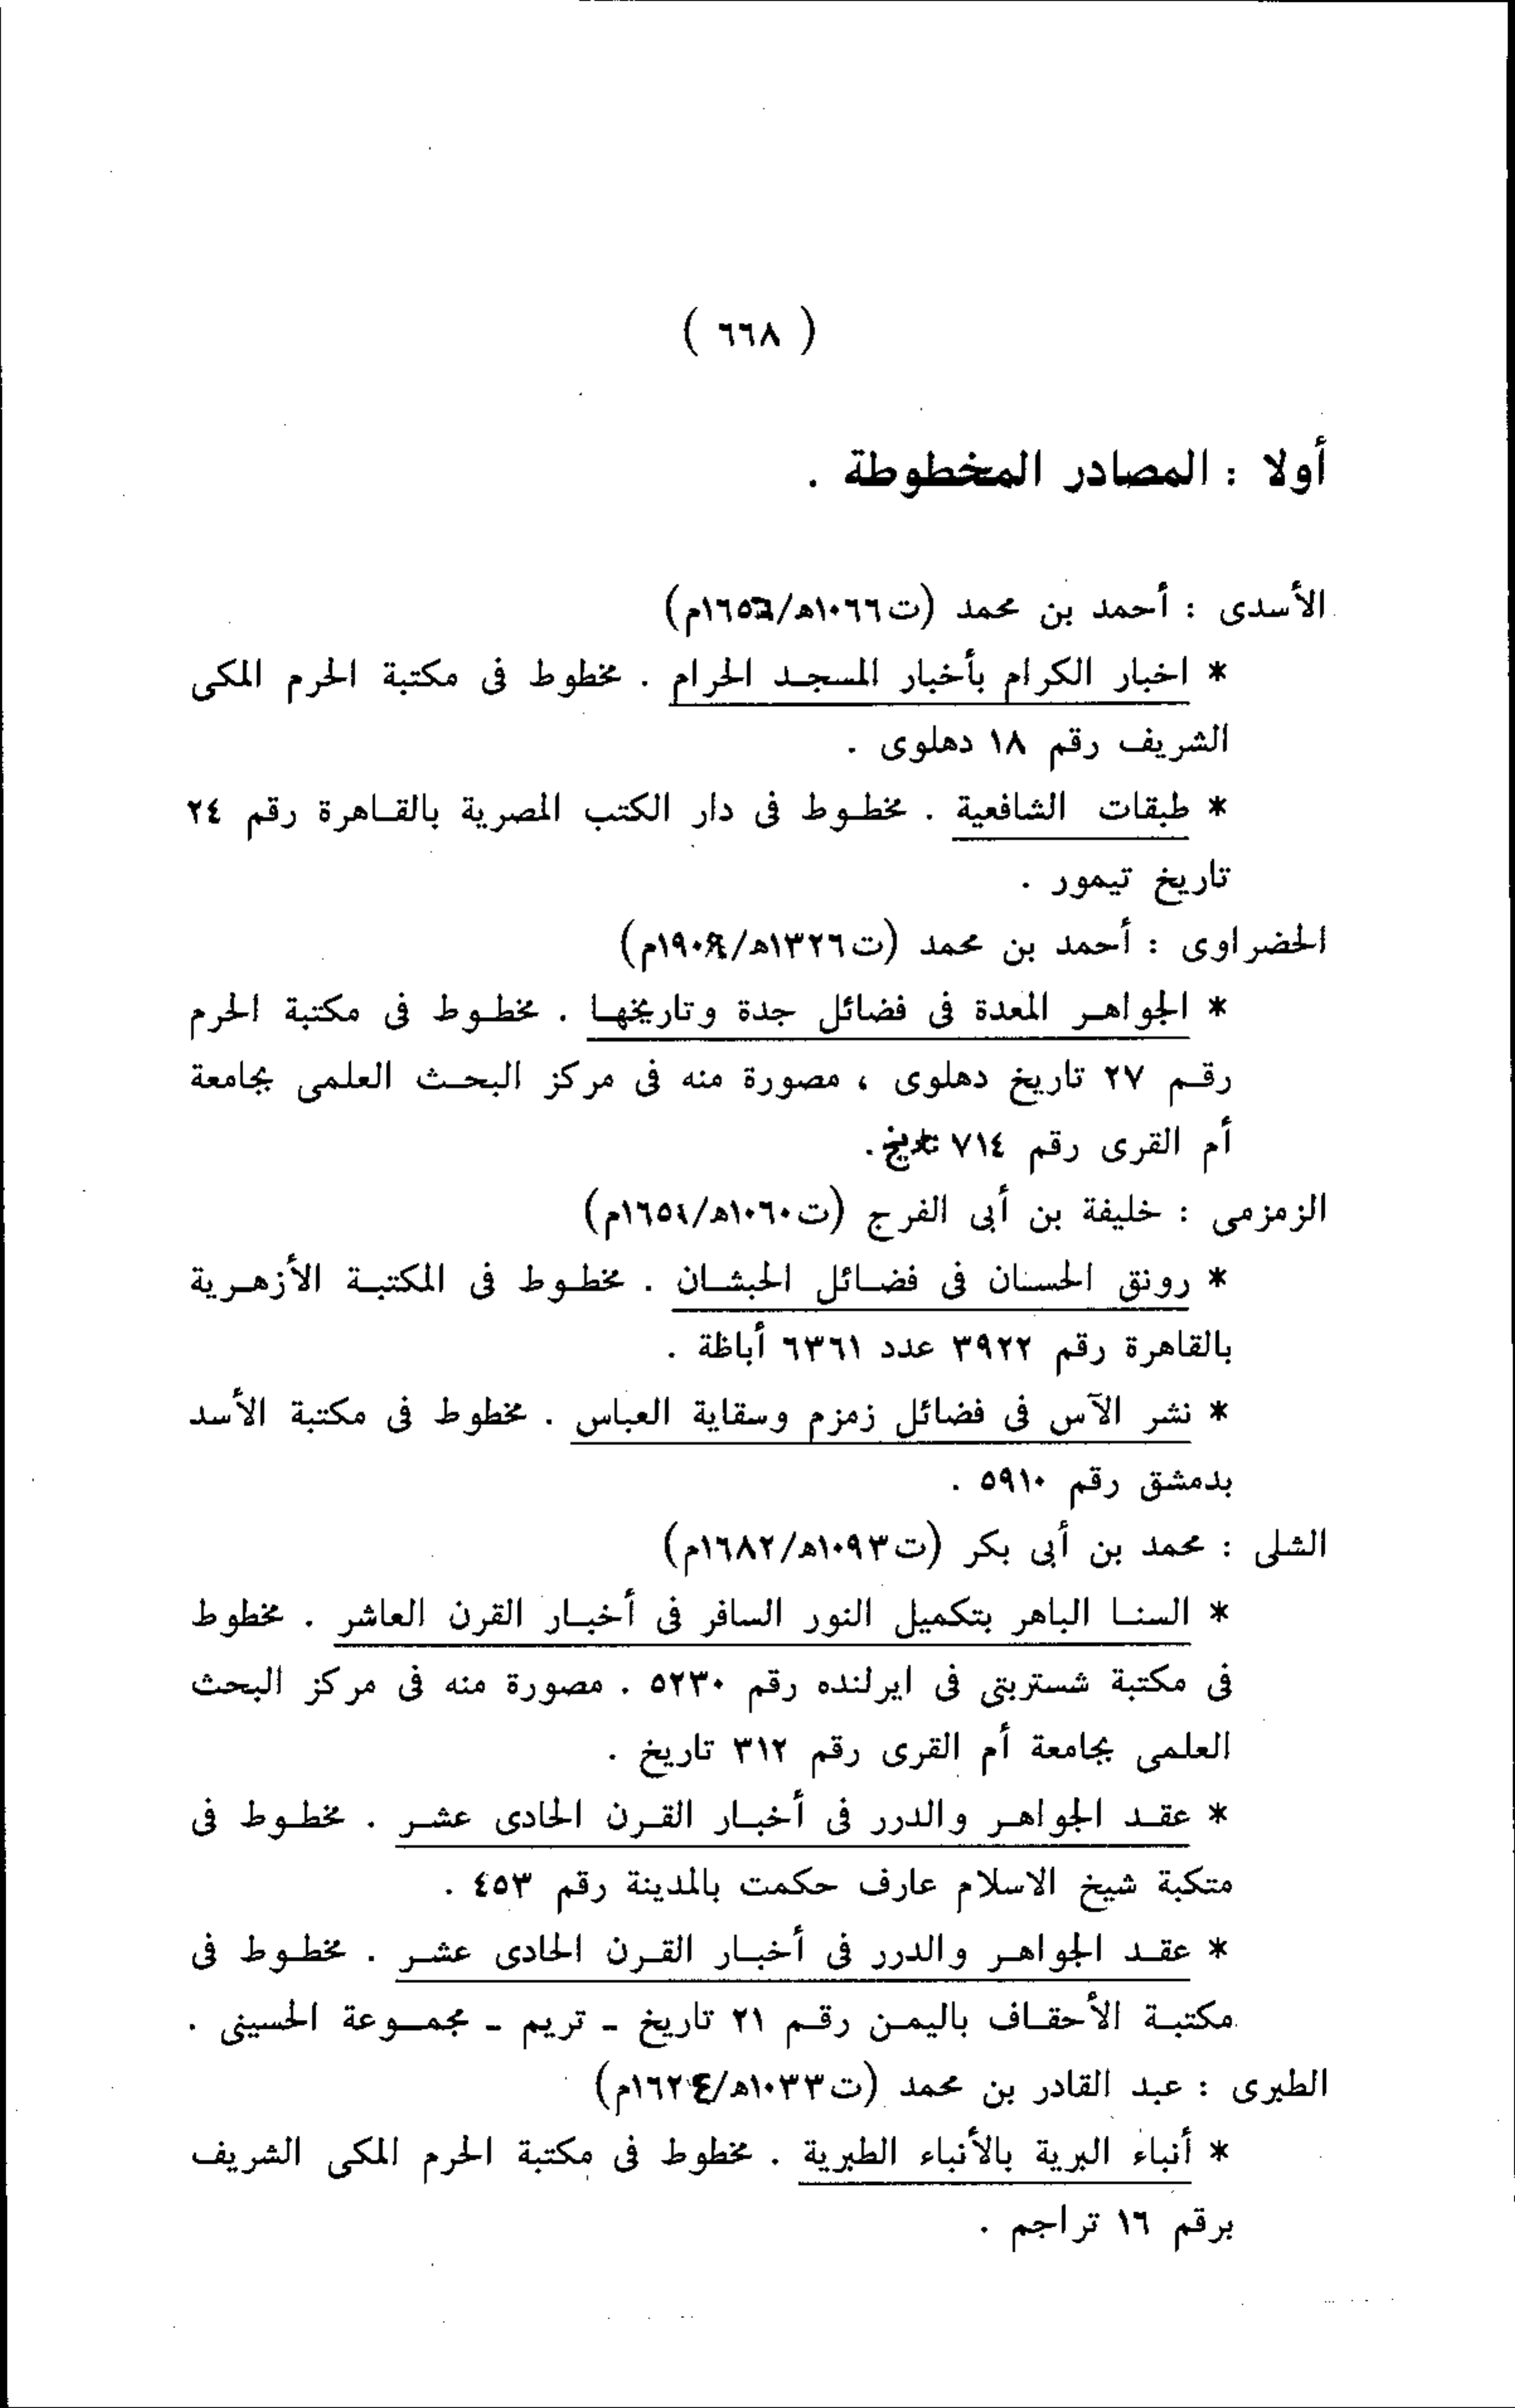 ( ٦٦٨ )
أولا : المصادر المخطوطة .
الأسدى : أحمد بن محمد (ت١٠٦٦هـ/١٦٥٦م)
* اخبار الكرام بأخبار المسجد الحرام . مخطوط فى مكتبة الحرم المكى
الشريف رقم ١٨ دهلوى .
* طبقات الشافعية . مخطوط فى دار الكتب المصرية بالقاهرة رقم ٢٤
تاريخ تيمور .
الحضراوى : أحمد بن محمد (ت١٣٢٦هـ/م)
* الجواهر المعدة فى فضائل جدة وتاريخها . مخطوط فى مكتبة الحرم
رقم ٢٧ تاريخ دهلوى ، مصورة منه فى مركز البحث العلمى بجامعة
أم القرى رقم ٧١٤ تاريخ.
الزمزمى : خليفة بن أبى الفرج (ت١٠٦٠هـ/١٦٥٤م)
* رونق الحسان فى فضائل الحبشان . مخطوط فى المكتبة الأزهرية
بالقاهرة رقم ٣٩٢٢ عدد ٦٣٦١ أباظة .
* نشر الآس فى فضائل زمزم وسقاية العباس . مخطوط فى مكتبة الأسد
بدمشق رقم ٥٩١٠ .
الشلى : محمد بن أبى بكر (ت١٠٩٣هـ/١٦٨٢م)
* السنا الباهر بتكميل النور السافر فى أخبار القرن العاشر . مخطوط
فى مكتبة شستربتى فى ايرلنده رقم ٥٢٣٠ . مصورة منه فى مركز البحث
العلمى بجامعة أم القرى رقم ٣١٢ تاريخ .
* عقد الجواهر والدرر فى أخبار القرن الحادى عشر . مخطوط فى
متكبة شيخ الاسلام عارف حكمت بالمدينة رقم ٤٥٣ .
* عقد الجواهر والدرر فى أخبار القرن الحادى عشر . مخطوط فى
مكتبة الأحقاف باليمن رقم ٢١ تاريخ - تريم - مجموعة الحسينى .
الطبرى : عبد القادر بن محمد (ت١٠٣٣هـ/١٦٢٤م)
* أنباء البرية بالأنباء الطبرية . مخطوط فى مكتبة الحرم المكى الشريف
برقم ١٦ تراجم .